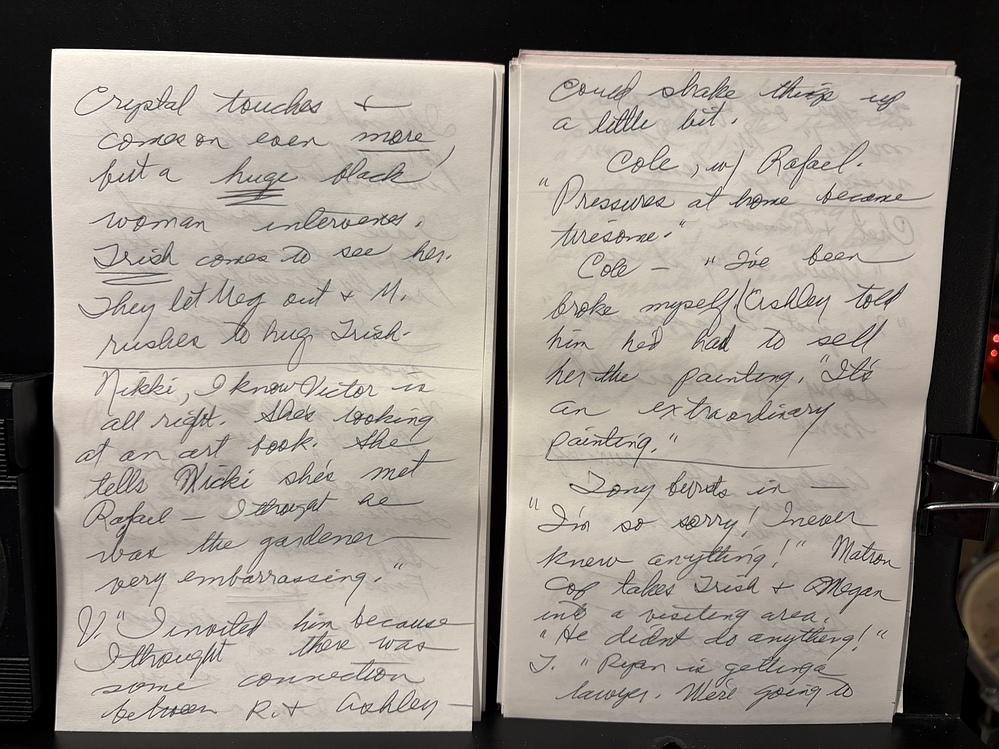 Crystal touches +
comes on even more,
but a huge black
woman intervenes.
Trish comes to see her.
They let Meg out + M.
rushes to hug Trish.
Nikki, I know Victor is
all right. She's looking
at an art book. She
tells Nicki she's met
Rafael – I thought he
was the gardener –
very embarrassing."
V. "I invited him because
I thought there was
some connection
between R. + Ashley –
Could shake things up
a little bit.
Cole, w/ Rafael.
"Pressures at home become
tiresome."
Cole – "I've been
broke myself (Ashley told
him he'd had to sell
her the painting. "It's
an extraordinary
painting."
Tony bursts in –
"I'm so sorry! I never
knew anything!" Matron
Cop takes Trish + Megan
into a visiting area.
"He didnt do anything!"
T. "Ryan is getting a
lawyer. We're going to